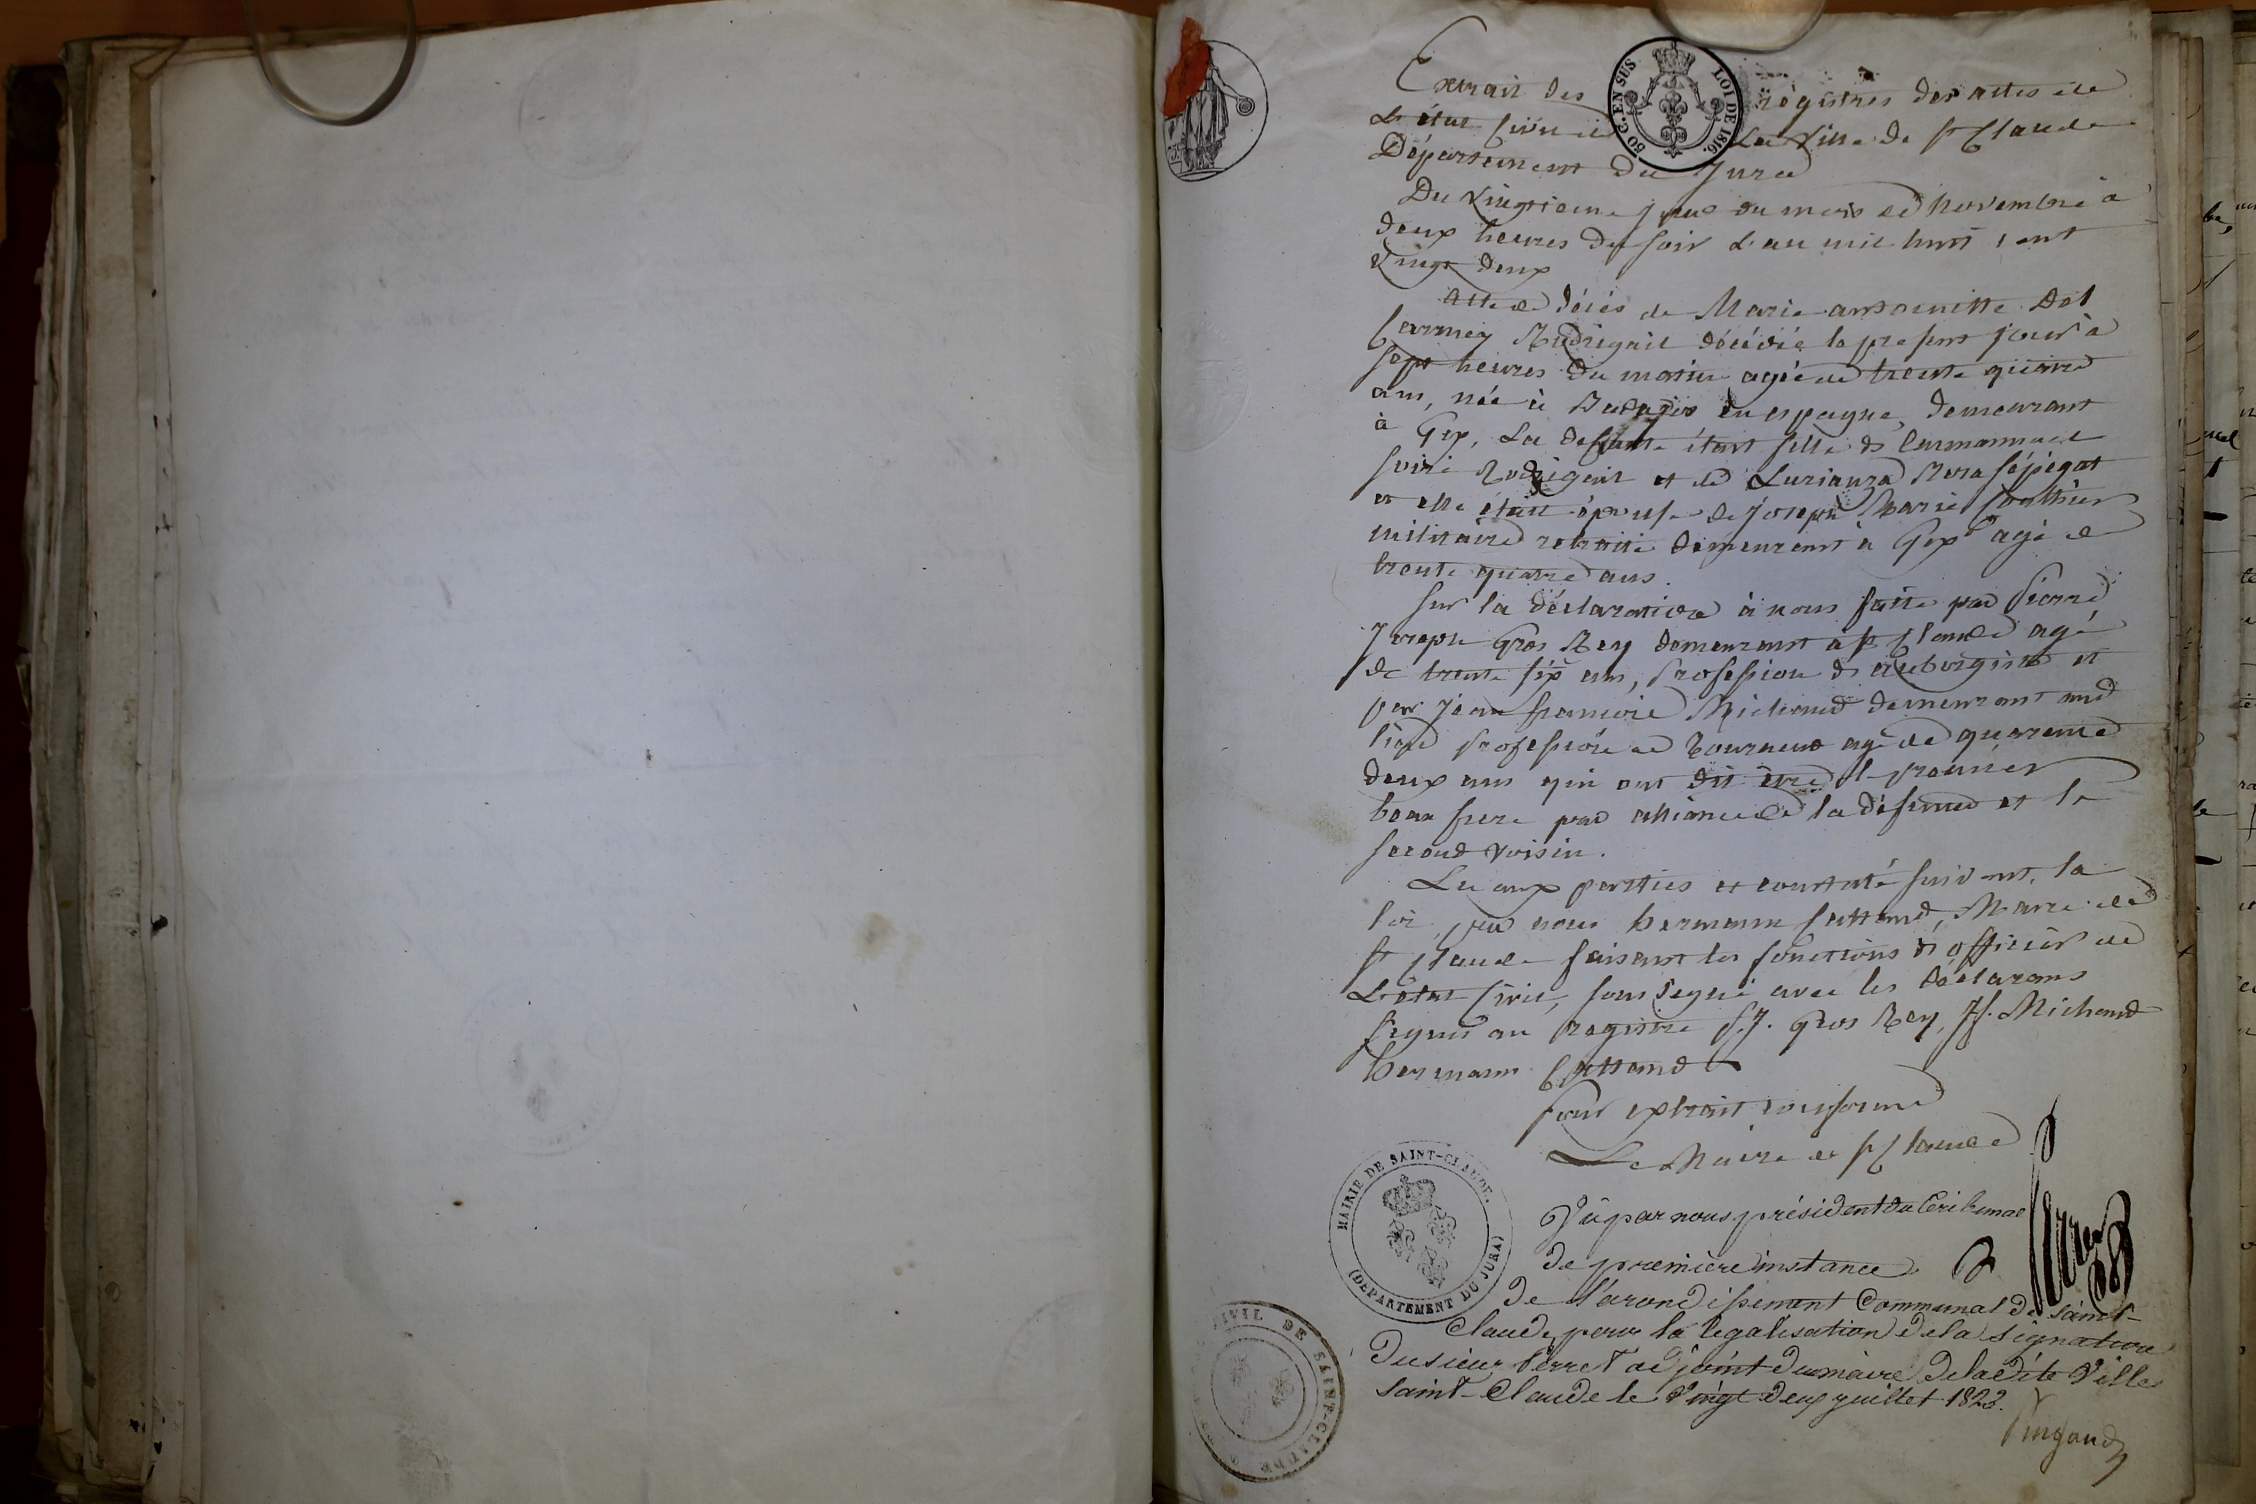 50 C. EN SUS
LOI DE 1816.
Extrait des registres des actes de
L'état Civil de La Ville de St Claude
Département du Jura
Du Vingtieme jour du mois de Novembre à
deux heures du soir l'an mil huit cent
Vingt deux
Acte de décès de Marie antoinette Del
Carmen décédée le present jour à
sept heures du matin agée de trente quatre
ans, née à Badajos en espagne, demeurant
à Gex, La defunte étant fille d'
et de
et elle était épouse de Joseph Marie Gauthier
militaire retraité demeurant à Gex agé de
trente quatre ans.
Sur la déclaration à nous faite par Pierre
Joseph Gros Rey demeurant à St Claude agé
de trente six ans, profession d'aubergiste et
par Jean françois Michaud demeurant aud
lieu profession de Tourneur agé de quarante
deux ans qui ont dit être le premier
beau frere par alliance de la défunte et le
second voisin.
Lu aux parties et constaté suivant la
loi, par nous hermann Cattand, Maire de
St Claude faisant les fonctions d'officier de
L'état Civil, soussigné avec les déclarans
signés au registre P.J. Gros Rey, J.f. Michaud
hermann Cattand
Pour extrait conforme
Le Maire de St Claude
MAIRIE DE SAINT-CLAUDE.
(DEPARTEMENT DU JURA)
Vû par nous président du tribunal
de première instance
de l'arondissement Communal de saint-
Claude, pour la legalisation de la signature
du sieur Perret adjoint du maire de la dite Ville
Saint-Claude le Vingt deux juillet 1823.
CIVIL DE SAINT-CLAUDE